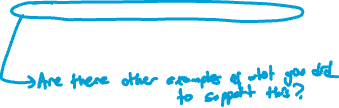 Are there other examples of what you did
to support this?